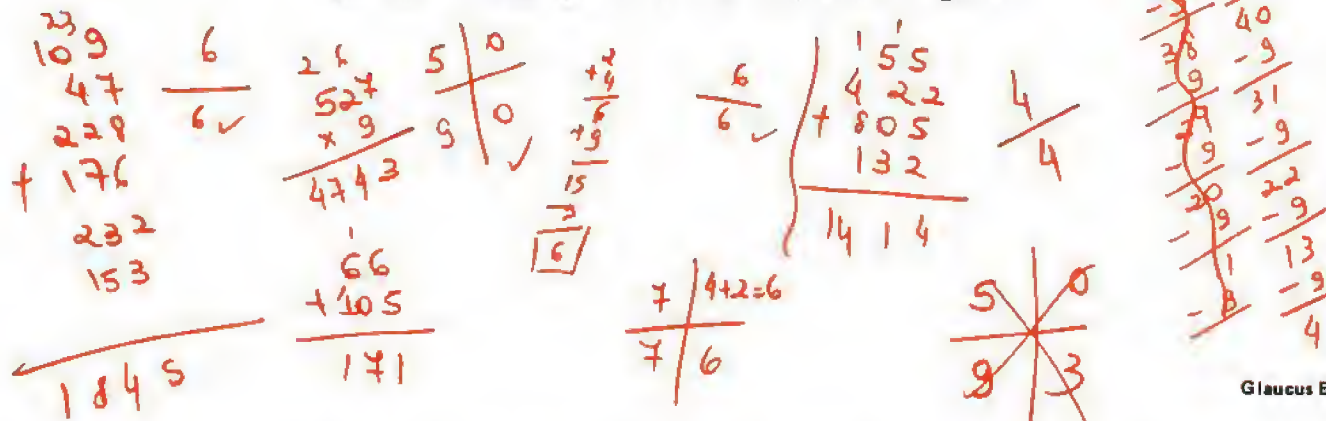 23
109
47
228
+ 176
232
153
1845
6
6 ✓
2 6
527
x 9
4743
5 0
9 0 ✓
1
66
+ 105
171
+2
4
6
+9
15
6
6
6 ✓
1 1
55
422
+ 805
132
1414
4
4
7 4+2=6
7 6
5 0
9 3
38
- 9
29
- 9
20
- 9
1
- 8
40
- 9
31
- 9
22
- 9
13
- 9
4
Glaucus B